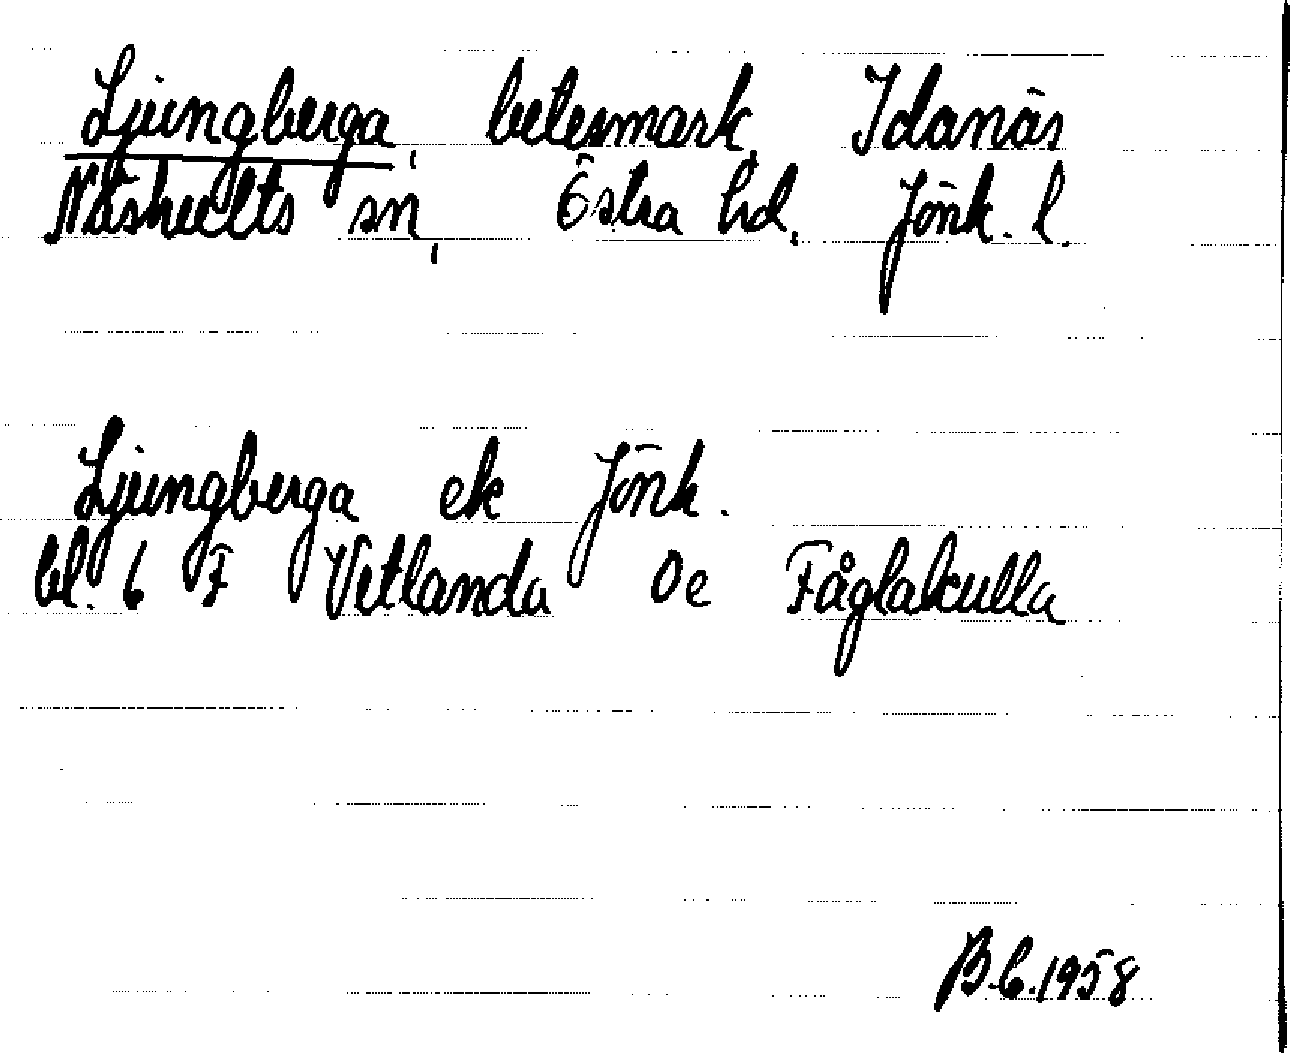 Ljungberga, betesmark, Idanäs
Näshults sn, Östra hd, Jönk. l.
Ljungberga ek Jönk.
bl. 6 F Vetlanda Oe Fåglakulla
B.C. 1958